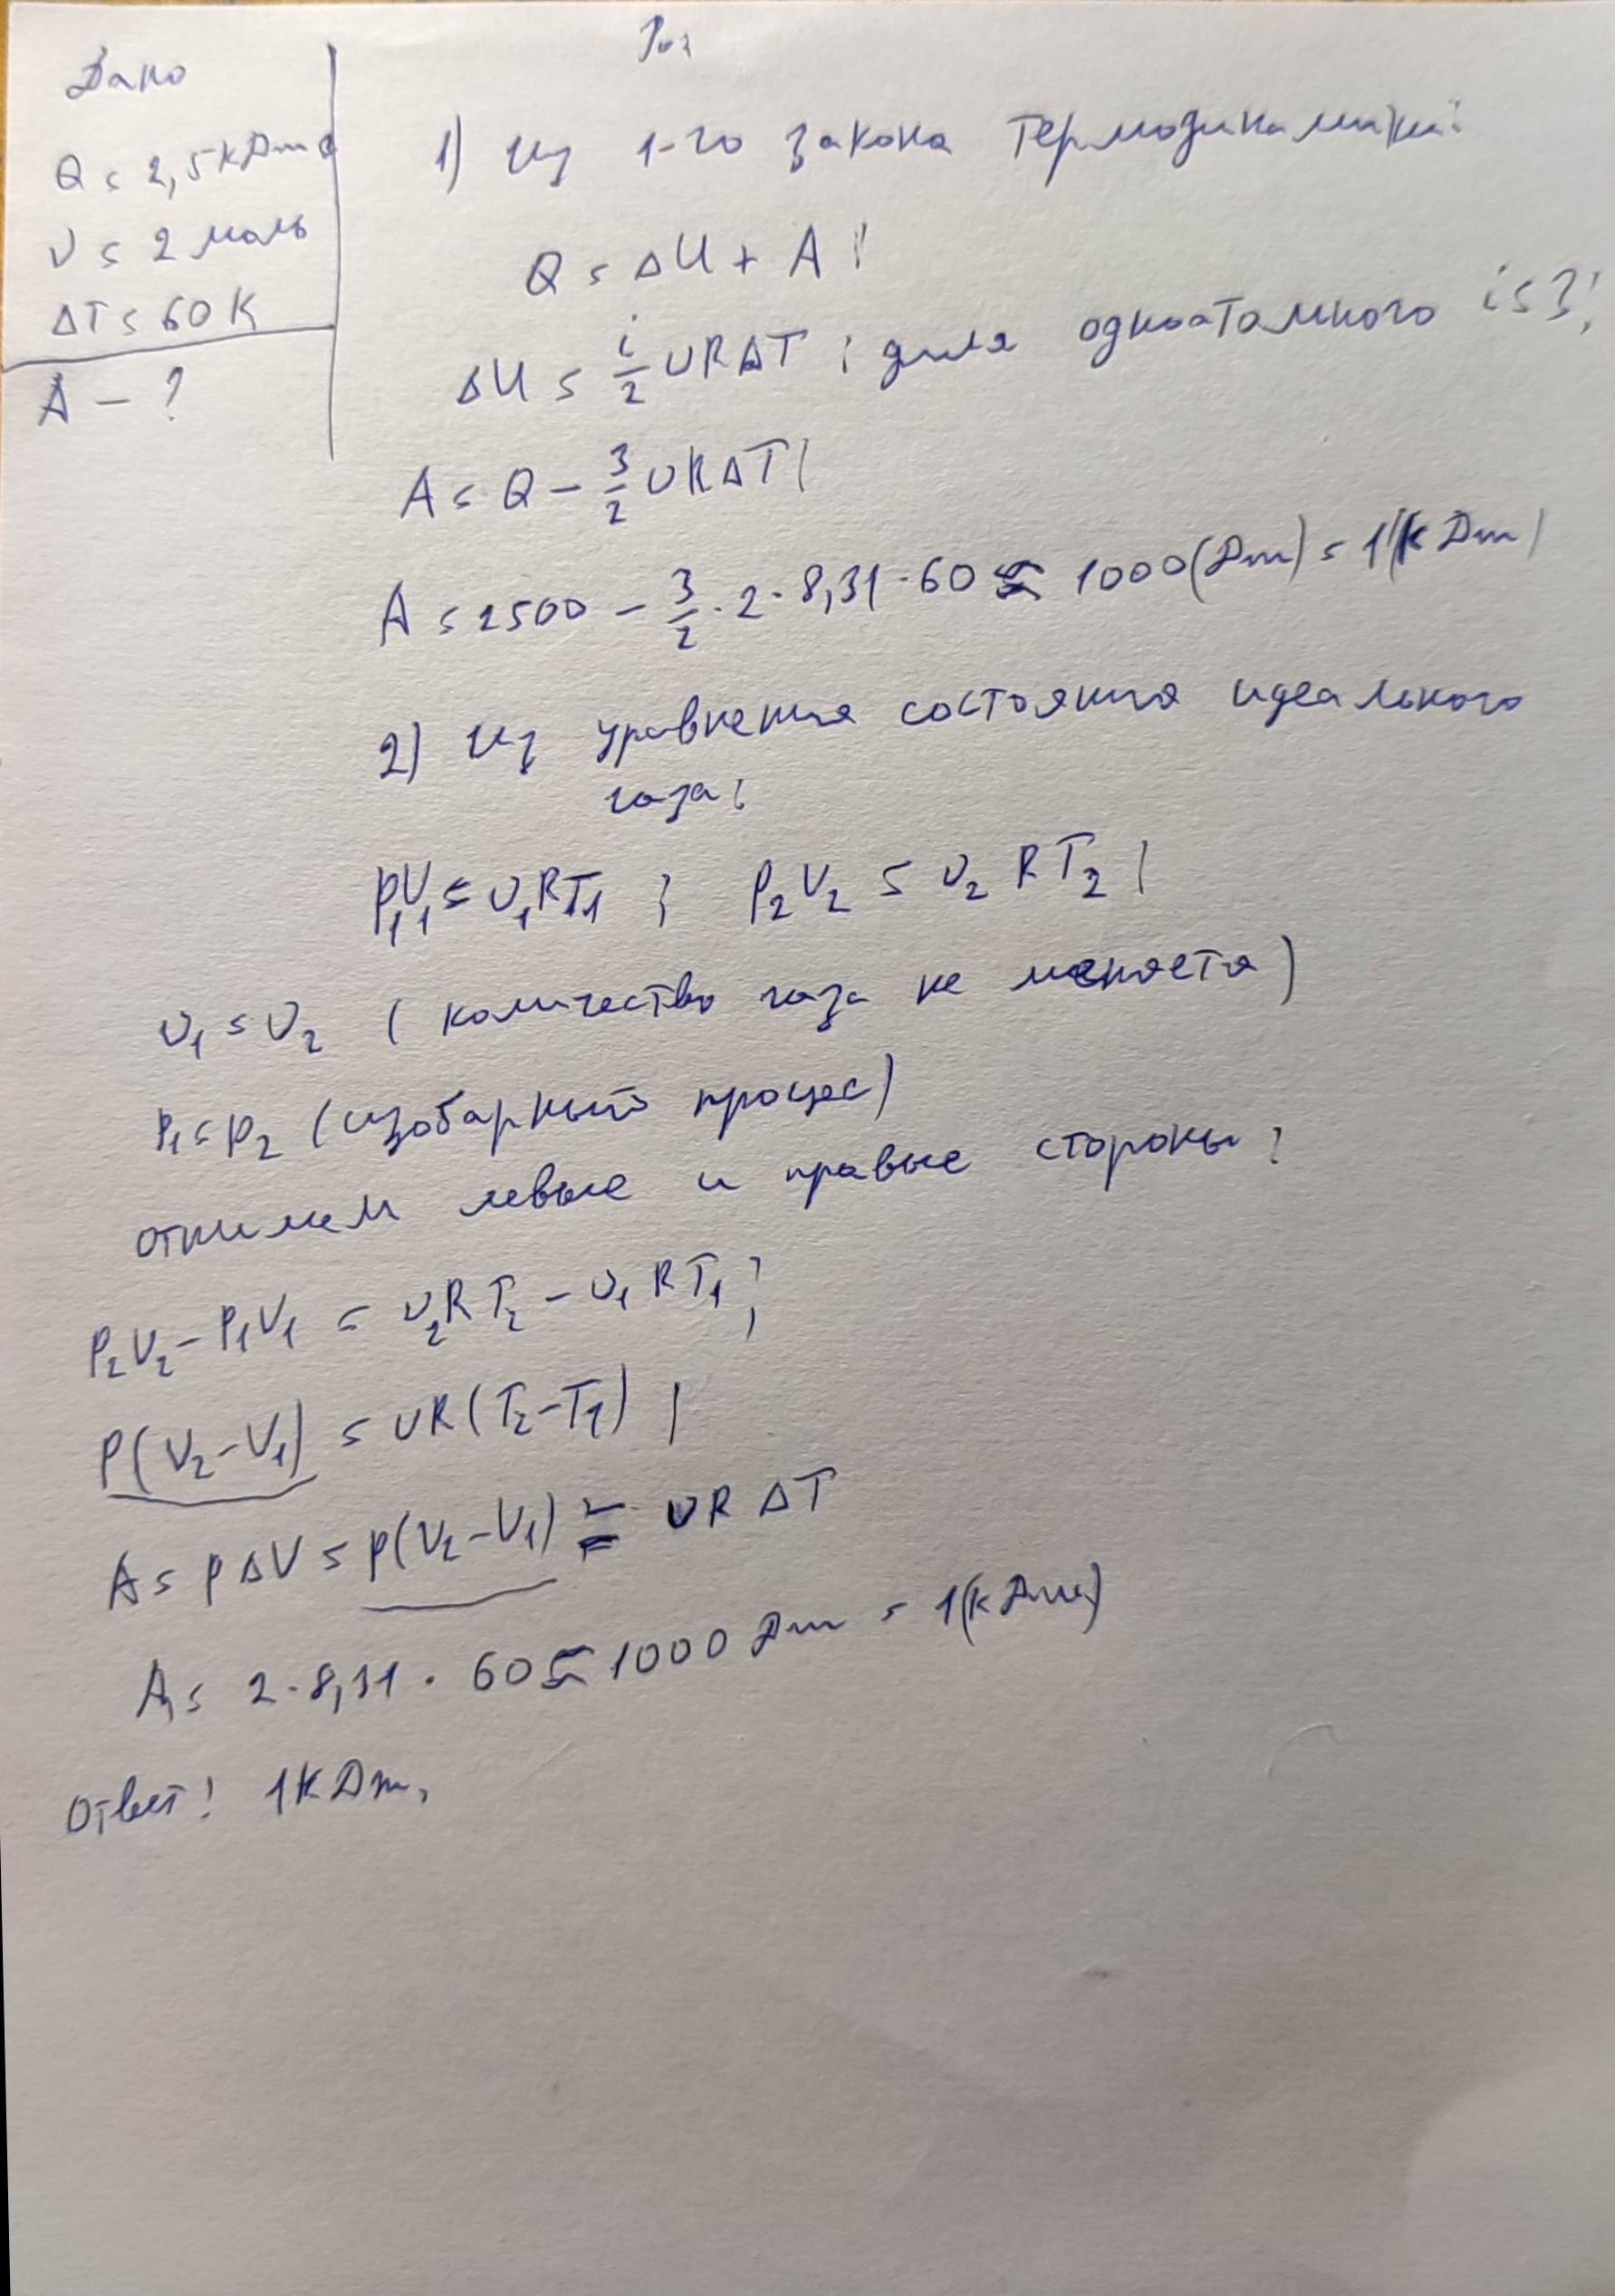 Дано
Q = 2,5 кДж
υ = 2 моль
ΔT = 60 К
A – ?
1) Из 1-го закона термодинамики:
Q = ΔU + A;
ΔU = i/2 υRΔT; для одноатомного i=3;
A = Q – 3/2 υRΔT;
A = 2500 – 3/2 · 2 · 8,31 · 60 ≈ 1000 (Дж) = 1 (кДж)
2) Из уравнения состояния идеального
газа:
p₁V₁ = υ₁RT₁; p₂V₂ = υ₂RT₂;
υ₁ = υ₂ (количество газа не меняется)
p₁ = p₂ (изобарный процес)
отнимем левые и правые стороны:
p₂V₂ – p₁V₁ = υ₂RT₂ – υ₁RT₁;
p(V₂–V₁) = υR(T₂–T₁);
A = pΔV = p(V₂–V₁) = υRΔT
A = 2·8,31 · 60 ≈ 1000 Дж = 1(кДж)
Ответ: 1 кДж.